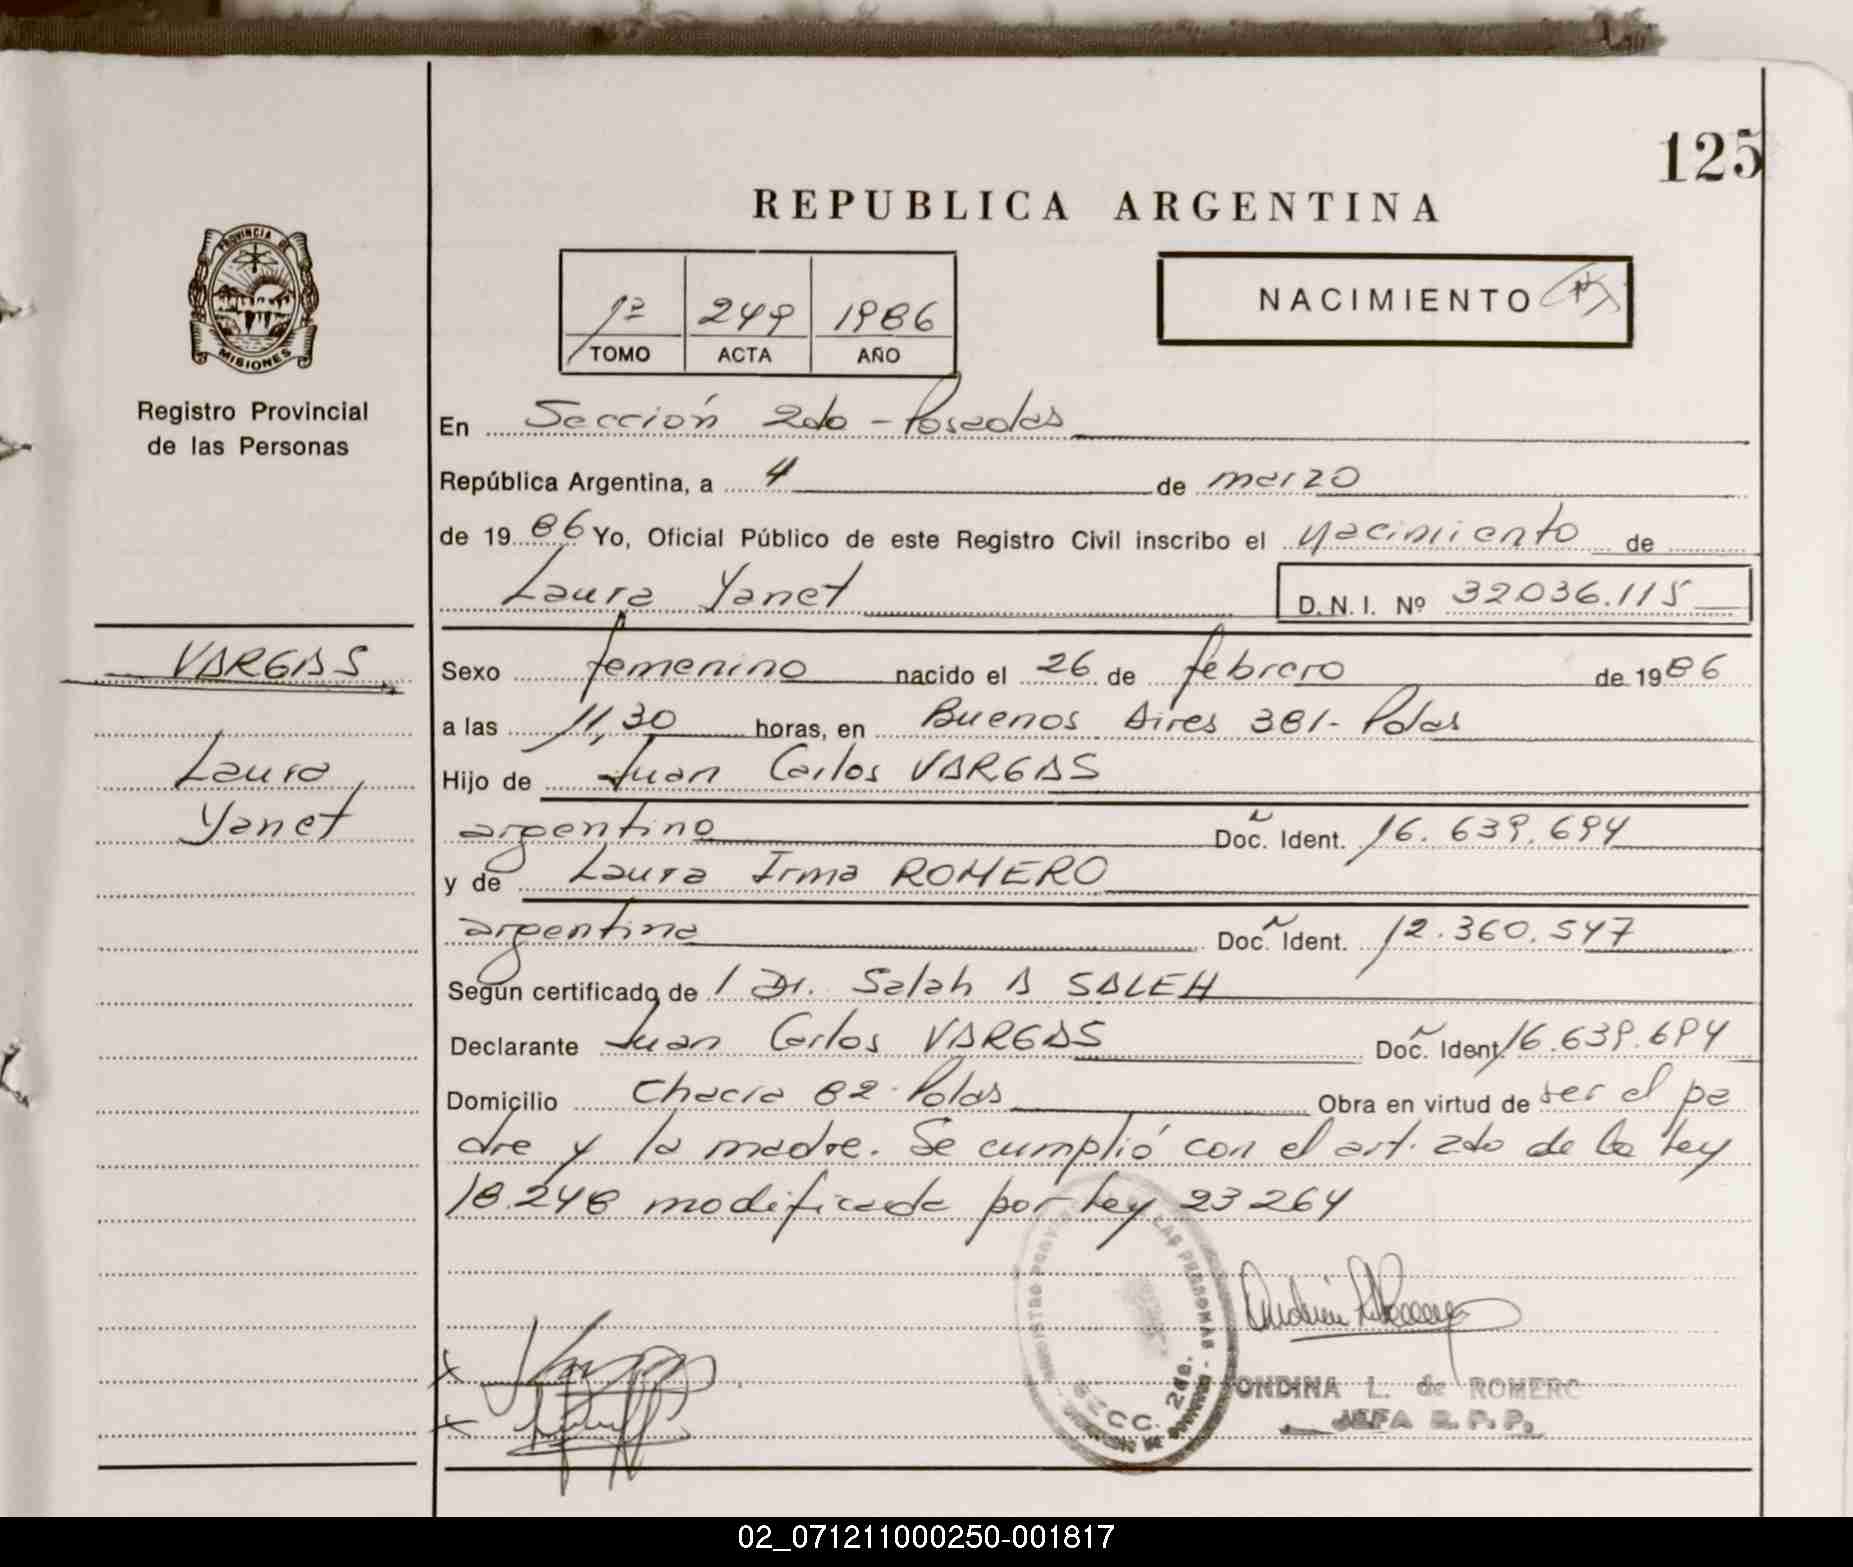 125
REPUBLICA ARGENTINA
PROVINCIA DE
MISIONES
Registro Provincial
de las Personas
1º 249 1986
TOMO ACTA AÑO
NACIMIENTO
En Sección 2da - Posadas
República Argentina, a 4 de marzo
de 1986 Yo, Oficial Público de este Registro Civil inscribo el Nacimiento de
Laura Yanet D.N.I. Nº 32036.115
VARGAS
Laura
Yanet
Sexo femenino nacido el 26 de febrero de 1986
a las 11,30 horas, en Buenos Aires 381 - Pdas
Hijo de Juan Carlos VARGAS
argentino Doc. Ident. 16.639.694
y de Laura Irma ROMERO
argentina Doc. Ident. 12.360.547
Según certificado de l Dr. Salah A SALEH
Declarante Juan Carlos VARGAS Doc. Ident. 16.639.694
Domicilio Chacra 82 - Pdas Obra en virtud de ser el pa
dre y la madre. Se cumplió con el art. 2do de la Ley
18.248 modificada por Ley 23264
LAS PERSONAS
SECC. 2da.
ONDINA L. de ROMERO
JEFA R. P. P.
02_071211000250-001817